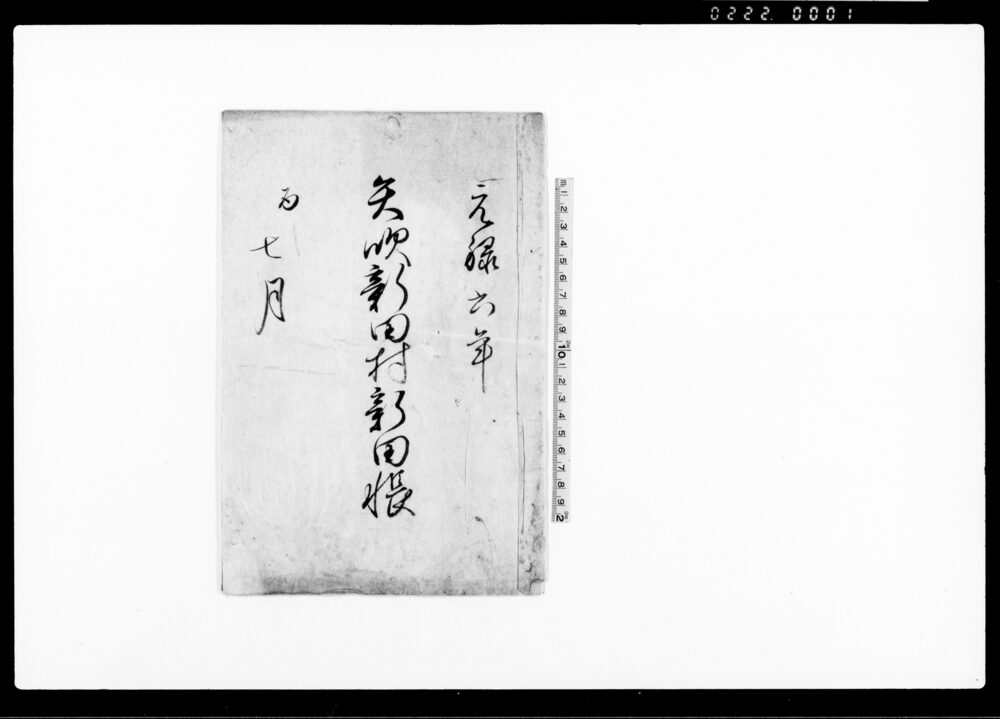 0222. 0001
元禄六年
矢吹新田村新田帳
酉
七月
1 2 3 4 5 6 7 8 9 10 1 2 3 4 5 6 7 8 9 2